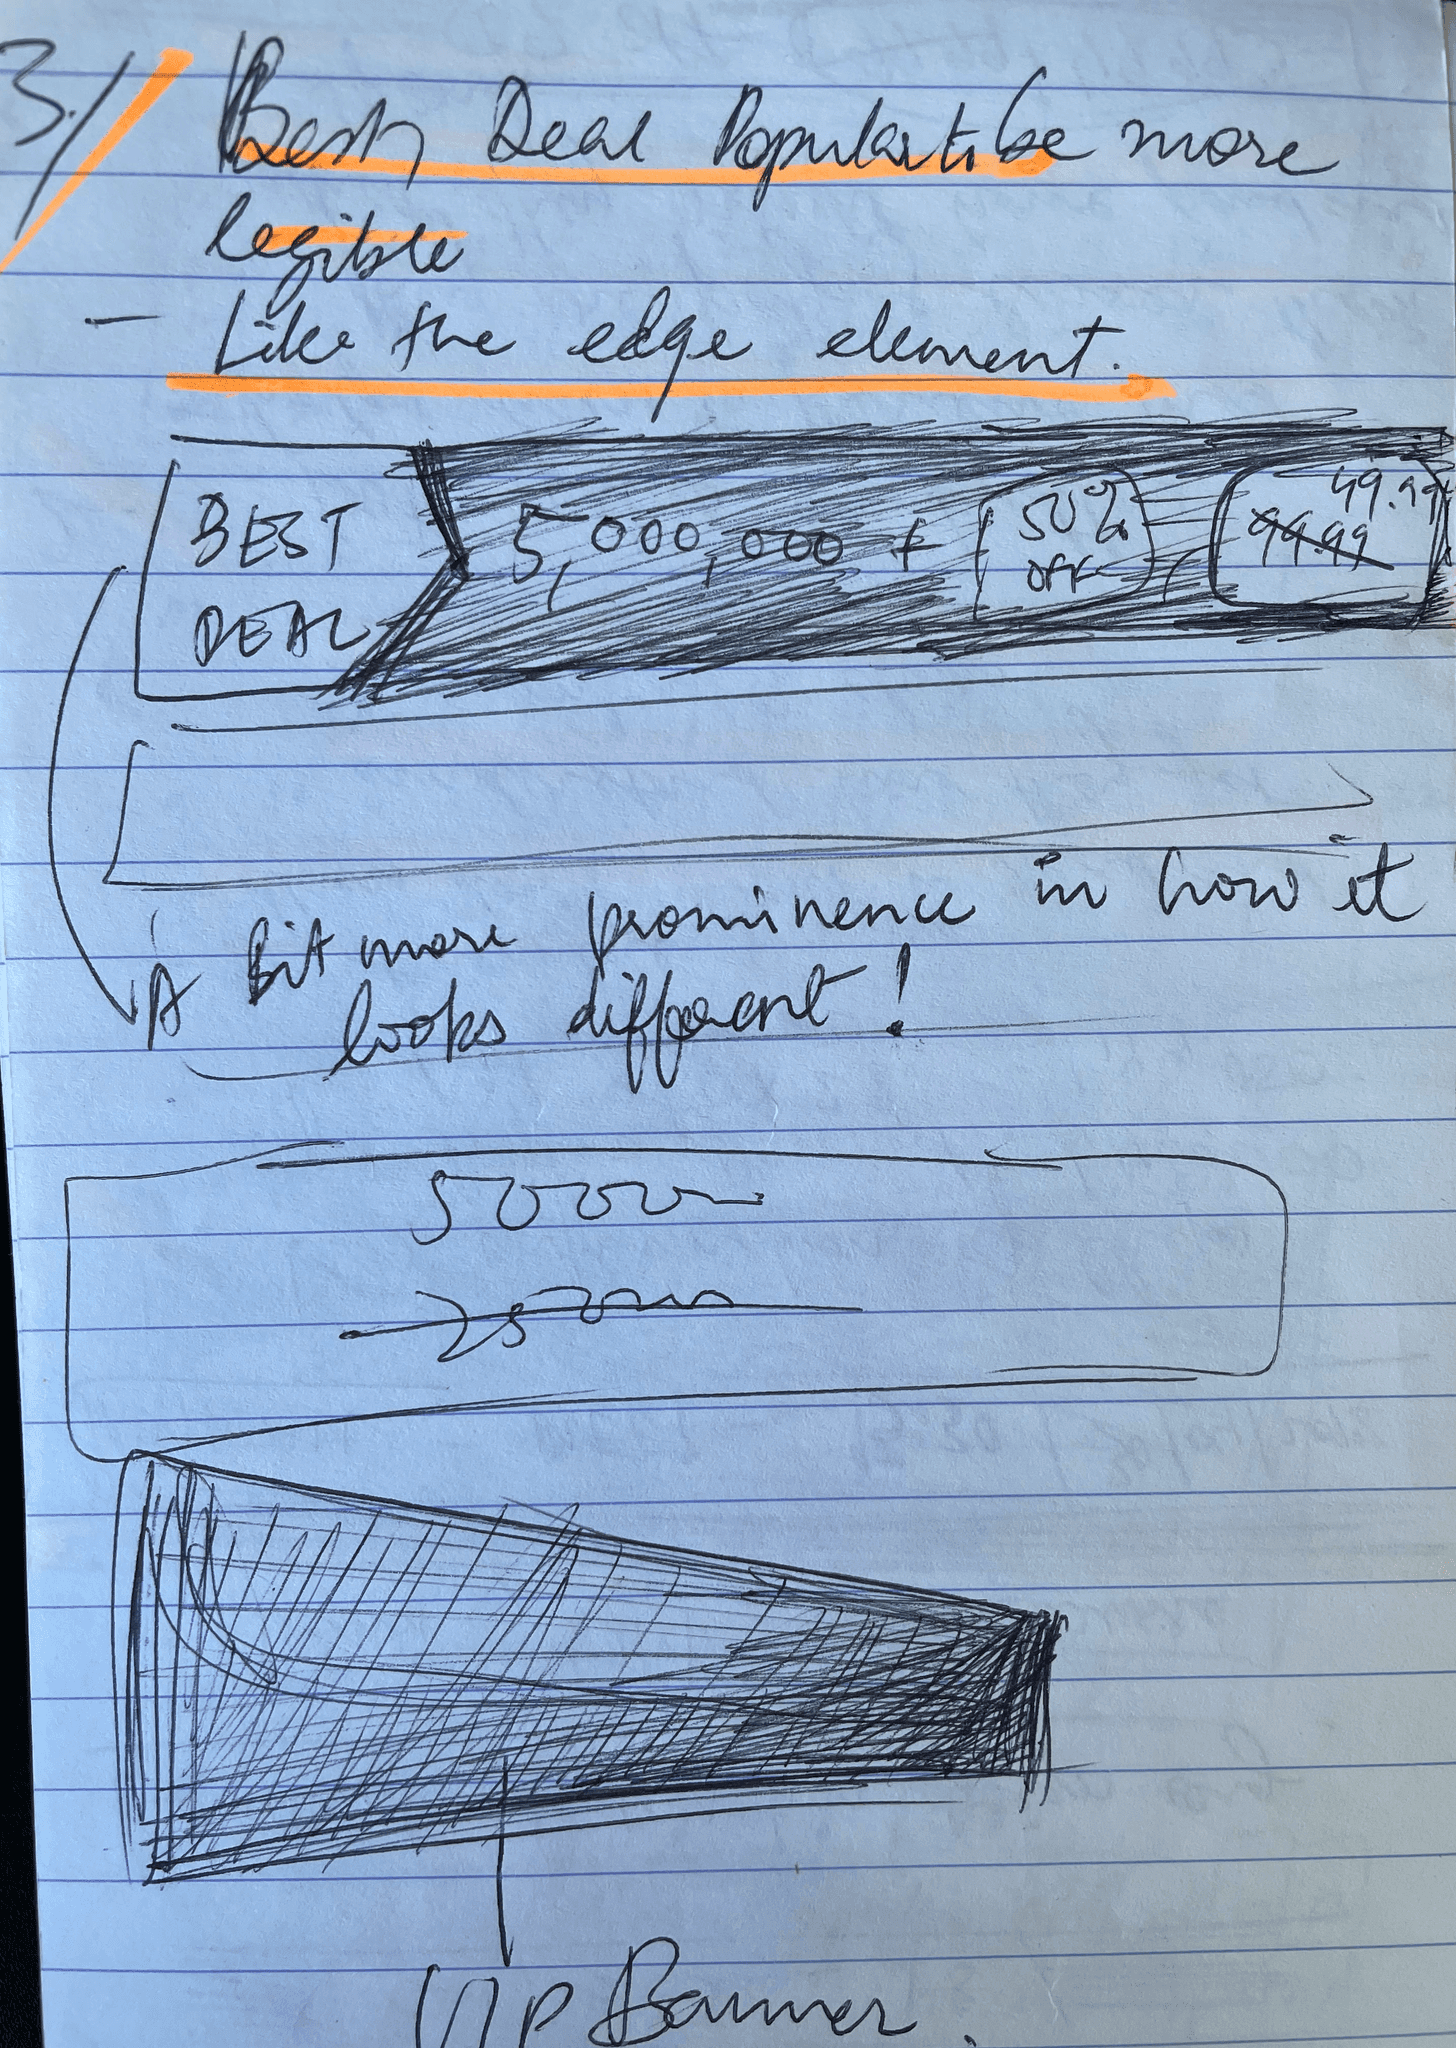 3./ Best, Deal Popular to be more
legible
- Like the edge element.
BEST
DEAL
5,000,000 +
50%
OFF
49.99
99.99
A Bit more prominence in how it
looks different!
5000
Banner.